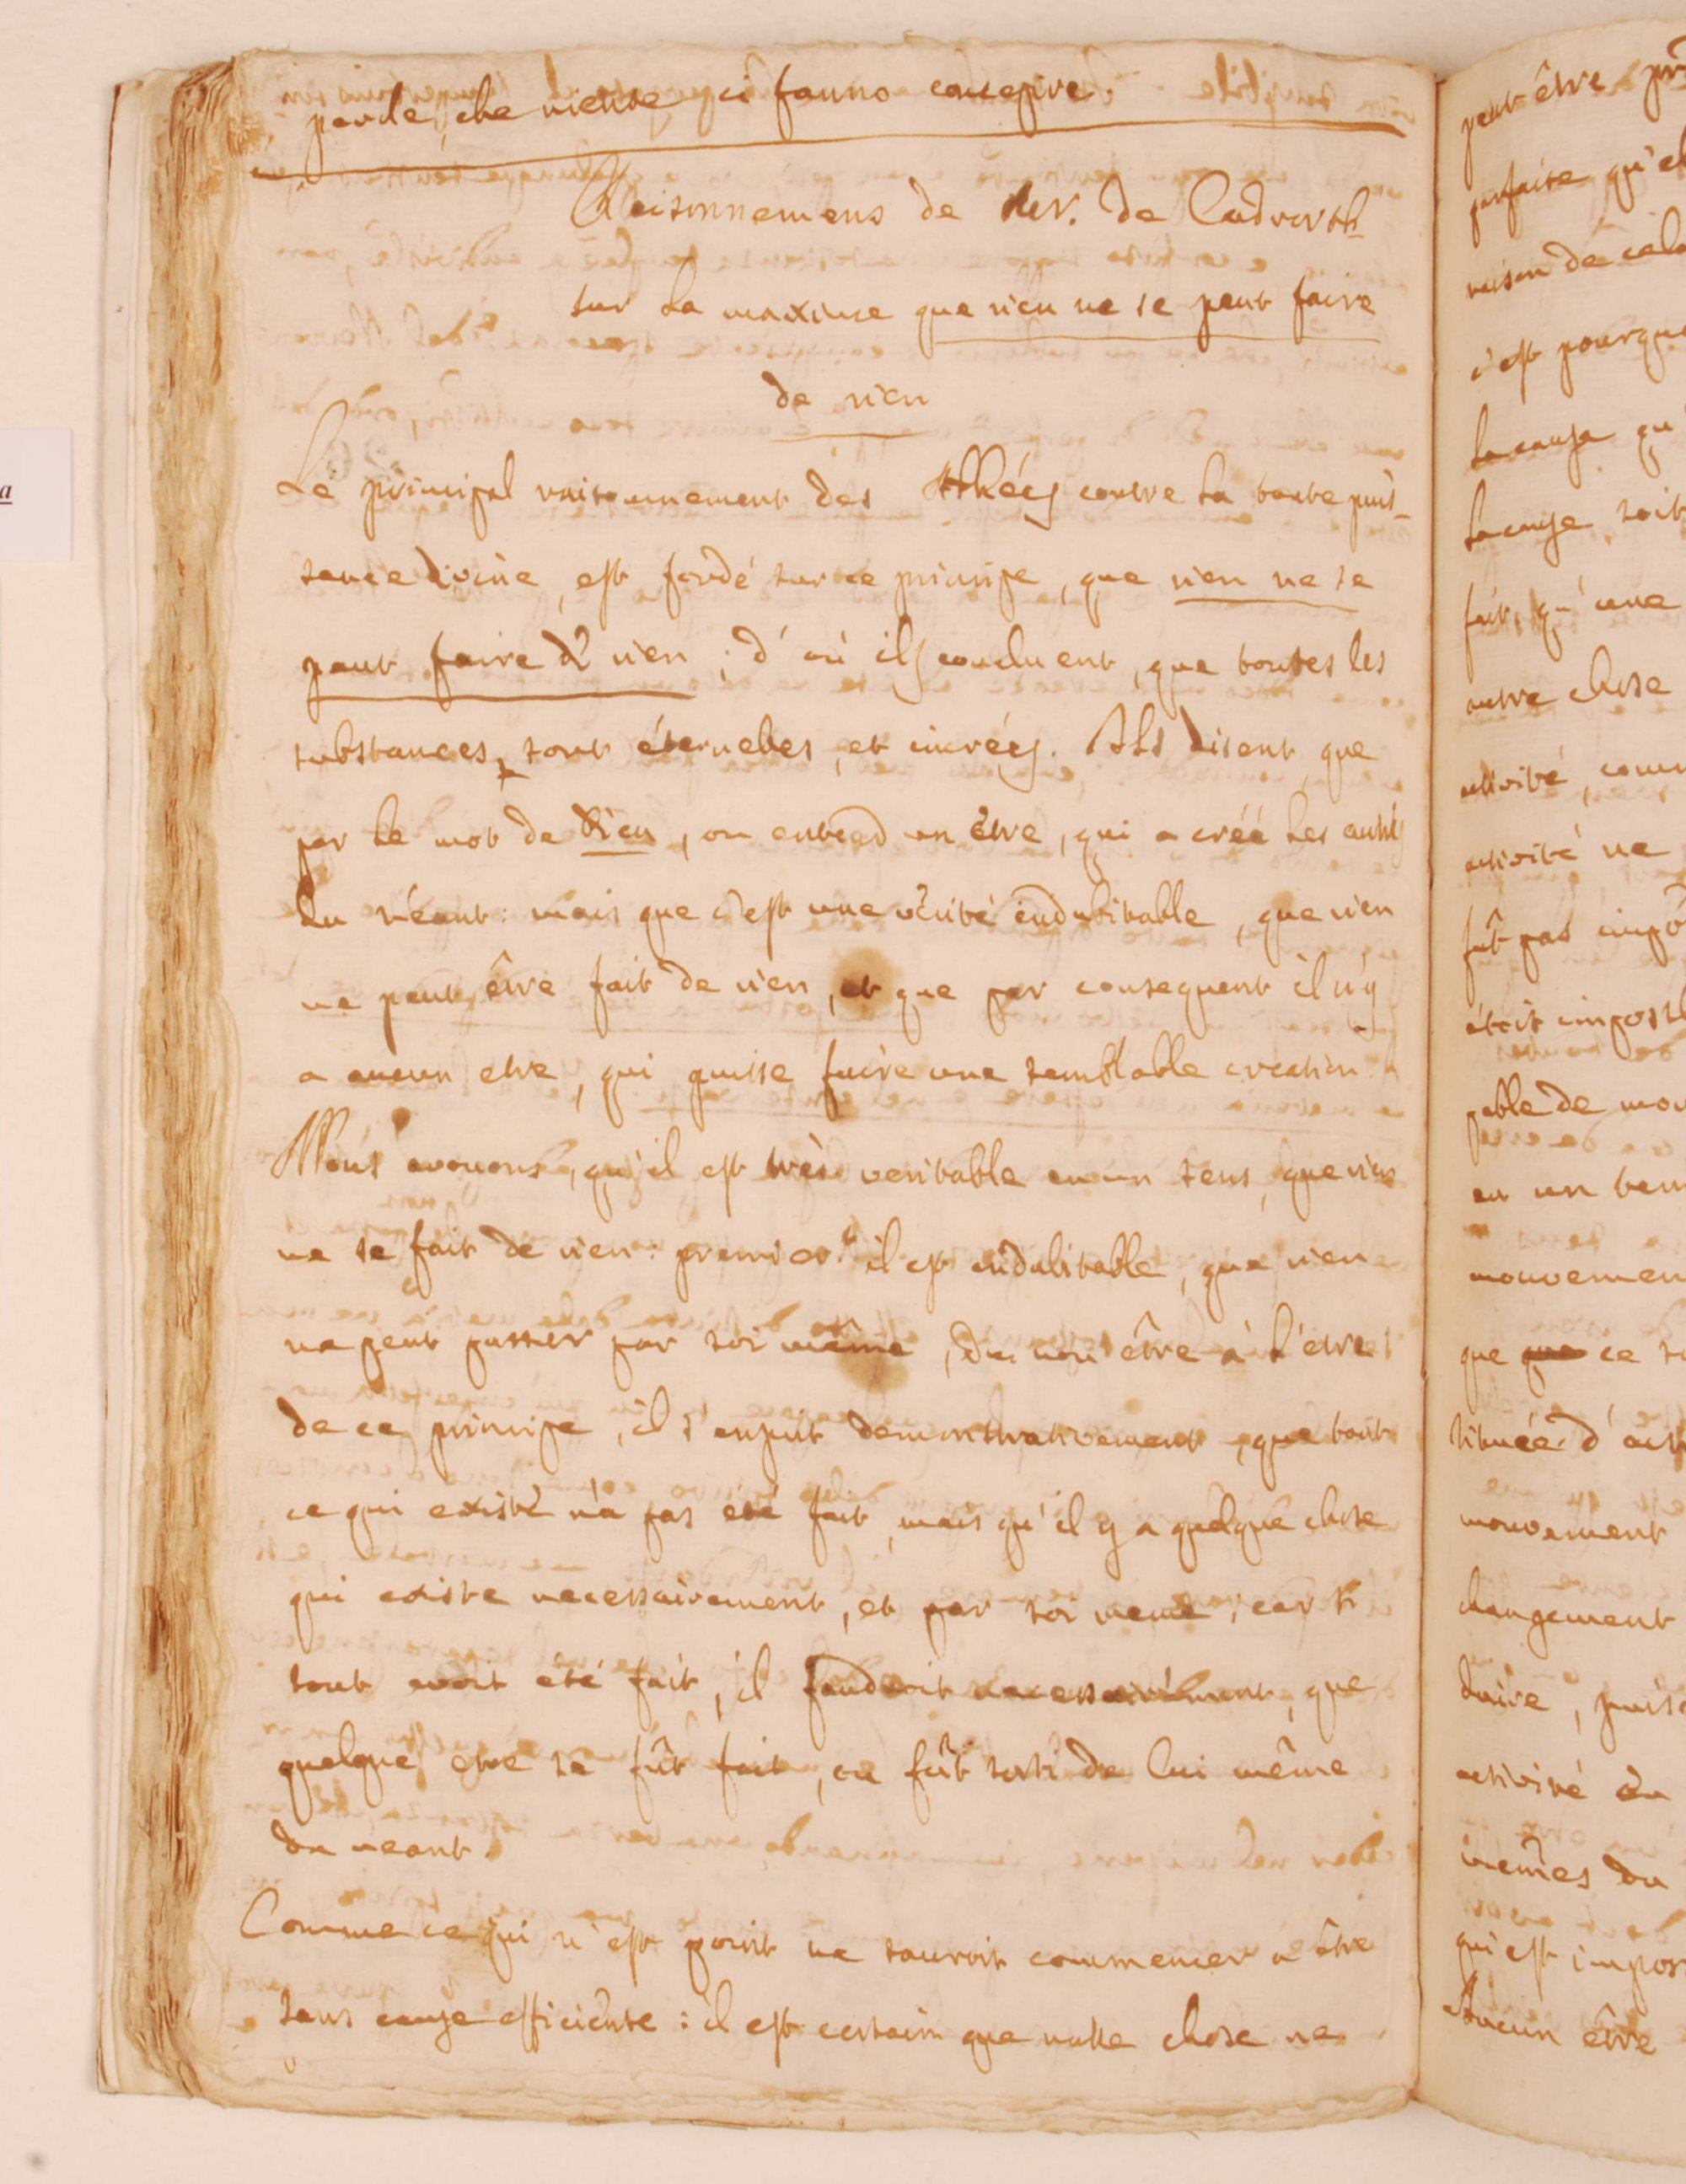 parole, che niente ci fanno concepire.
Raisonnemens de Mr. de Cudworth
sur la maxime que rien ne se peut faire
de rien
Le principal raisonnement des Athées contre la toute puis-
sance divine, est fondé sur ce principe, que rien ne se
peut faire de rien ; d'où ils concluent, que toutes les
substances sont éternelles, et incréés. Ils disent que
par le mot de Rien, on entend un être, qui a créé les autres
du néant: mais que c'est une vérité indubitable, que rien
ne peut être fait de rien, et que par consequent il n'y
a aucun etre, qui puisse faire une semblable creation
Nous avouons, qu'il est très veritable en un sens, que rien
ne se fait de rien: premier.t il est indubitable, que rien
ne peut passer par soi même, du non être à l'etre
de ce principe, il s'ensuit demonstrativement, que tout
ce qui existe n'a pas eté fait, mais qu'il y a quelque chose
qui existe necessairement, et par soi meme; car si
tout avoit eté fait, il faudroit necessairement, que
quelque etre se fût fait, ou fût sorti de lui même
du neant.
Comme ce qui n'est point ne sauroit commencer a être
sans cause efficiente: il est certain que nulle chose ne
peut être
parfaite qu'el
raison de cela
c'est pourquo
la cause qu
la cause soit
fait, qu'une
autre chose
activité, com
activité ne
fût pas impo
étoit imposs
pable de mou
en un
mouvemen
que ce
tituée d'act
mouvement
changement
duire, puis
activité du
mêmes du
qui est impos
Aucun être